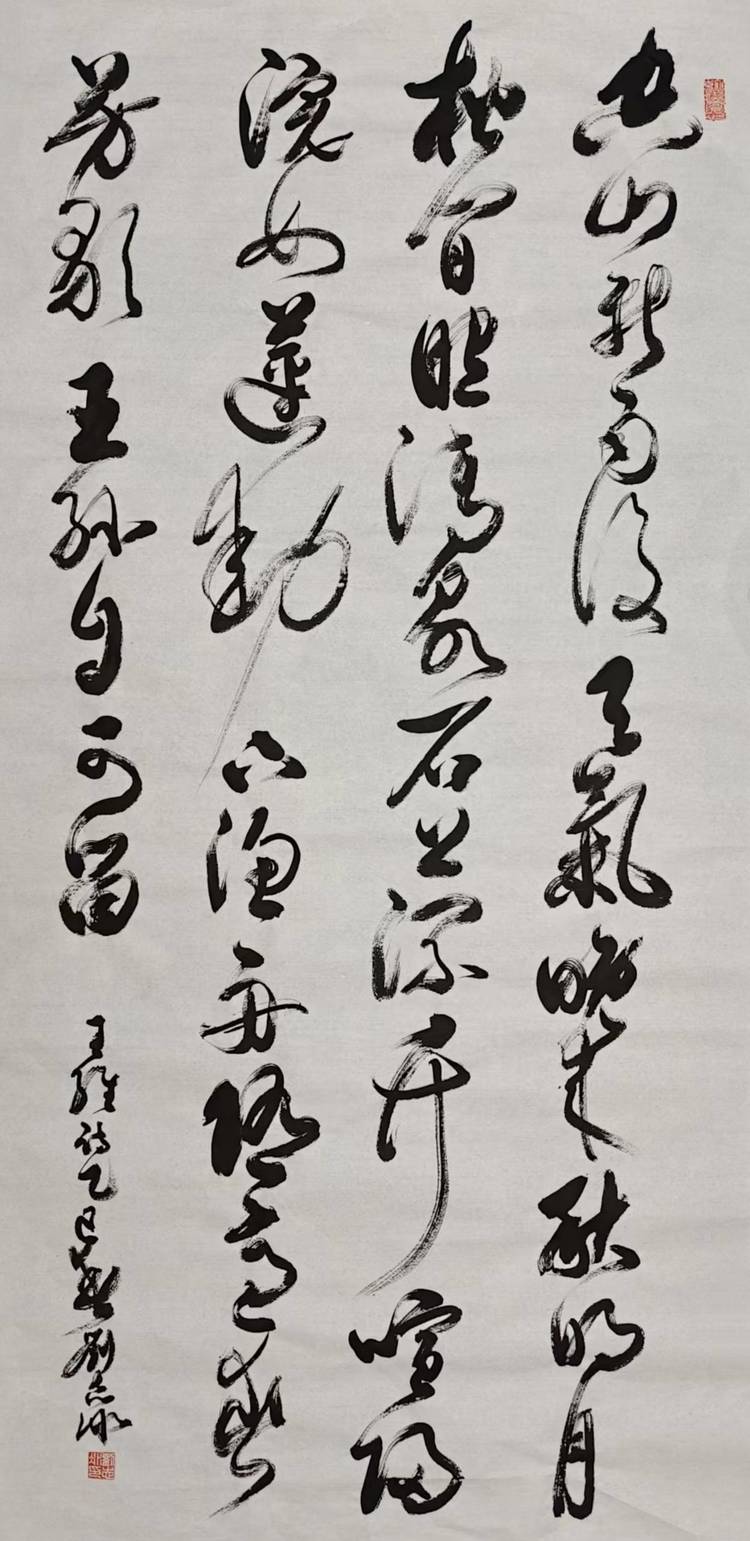 空山新雨後天氣晚来秋明月
松間照清泉石上流竹喧歸
浣女蓮動下漁舟随意春
芳歇王孫自可留
王維诗乙巳劉志